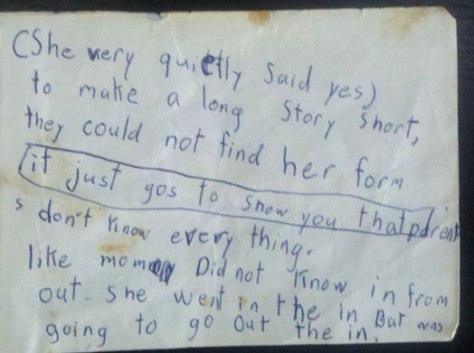 (She very quietly said yes)
to make a long Story short,
they could not find her form.
it just gos to show you that parent
s don't know every thing.
like mommy Did not know in from
out. She went in the in But was
going to go out the in.